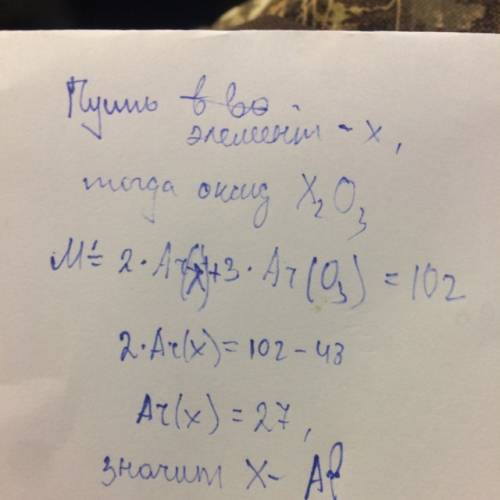 Пусть в во
элемент - x,
тогда оксид X₂O₃
M = 2·Ar(x)+3·Ar(O₃) = 102
2·Ar(x) = 102 - 48
Ar(x) = 27,
значит X - Al